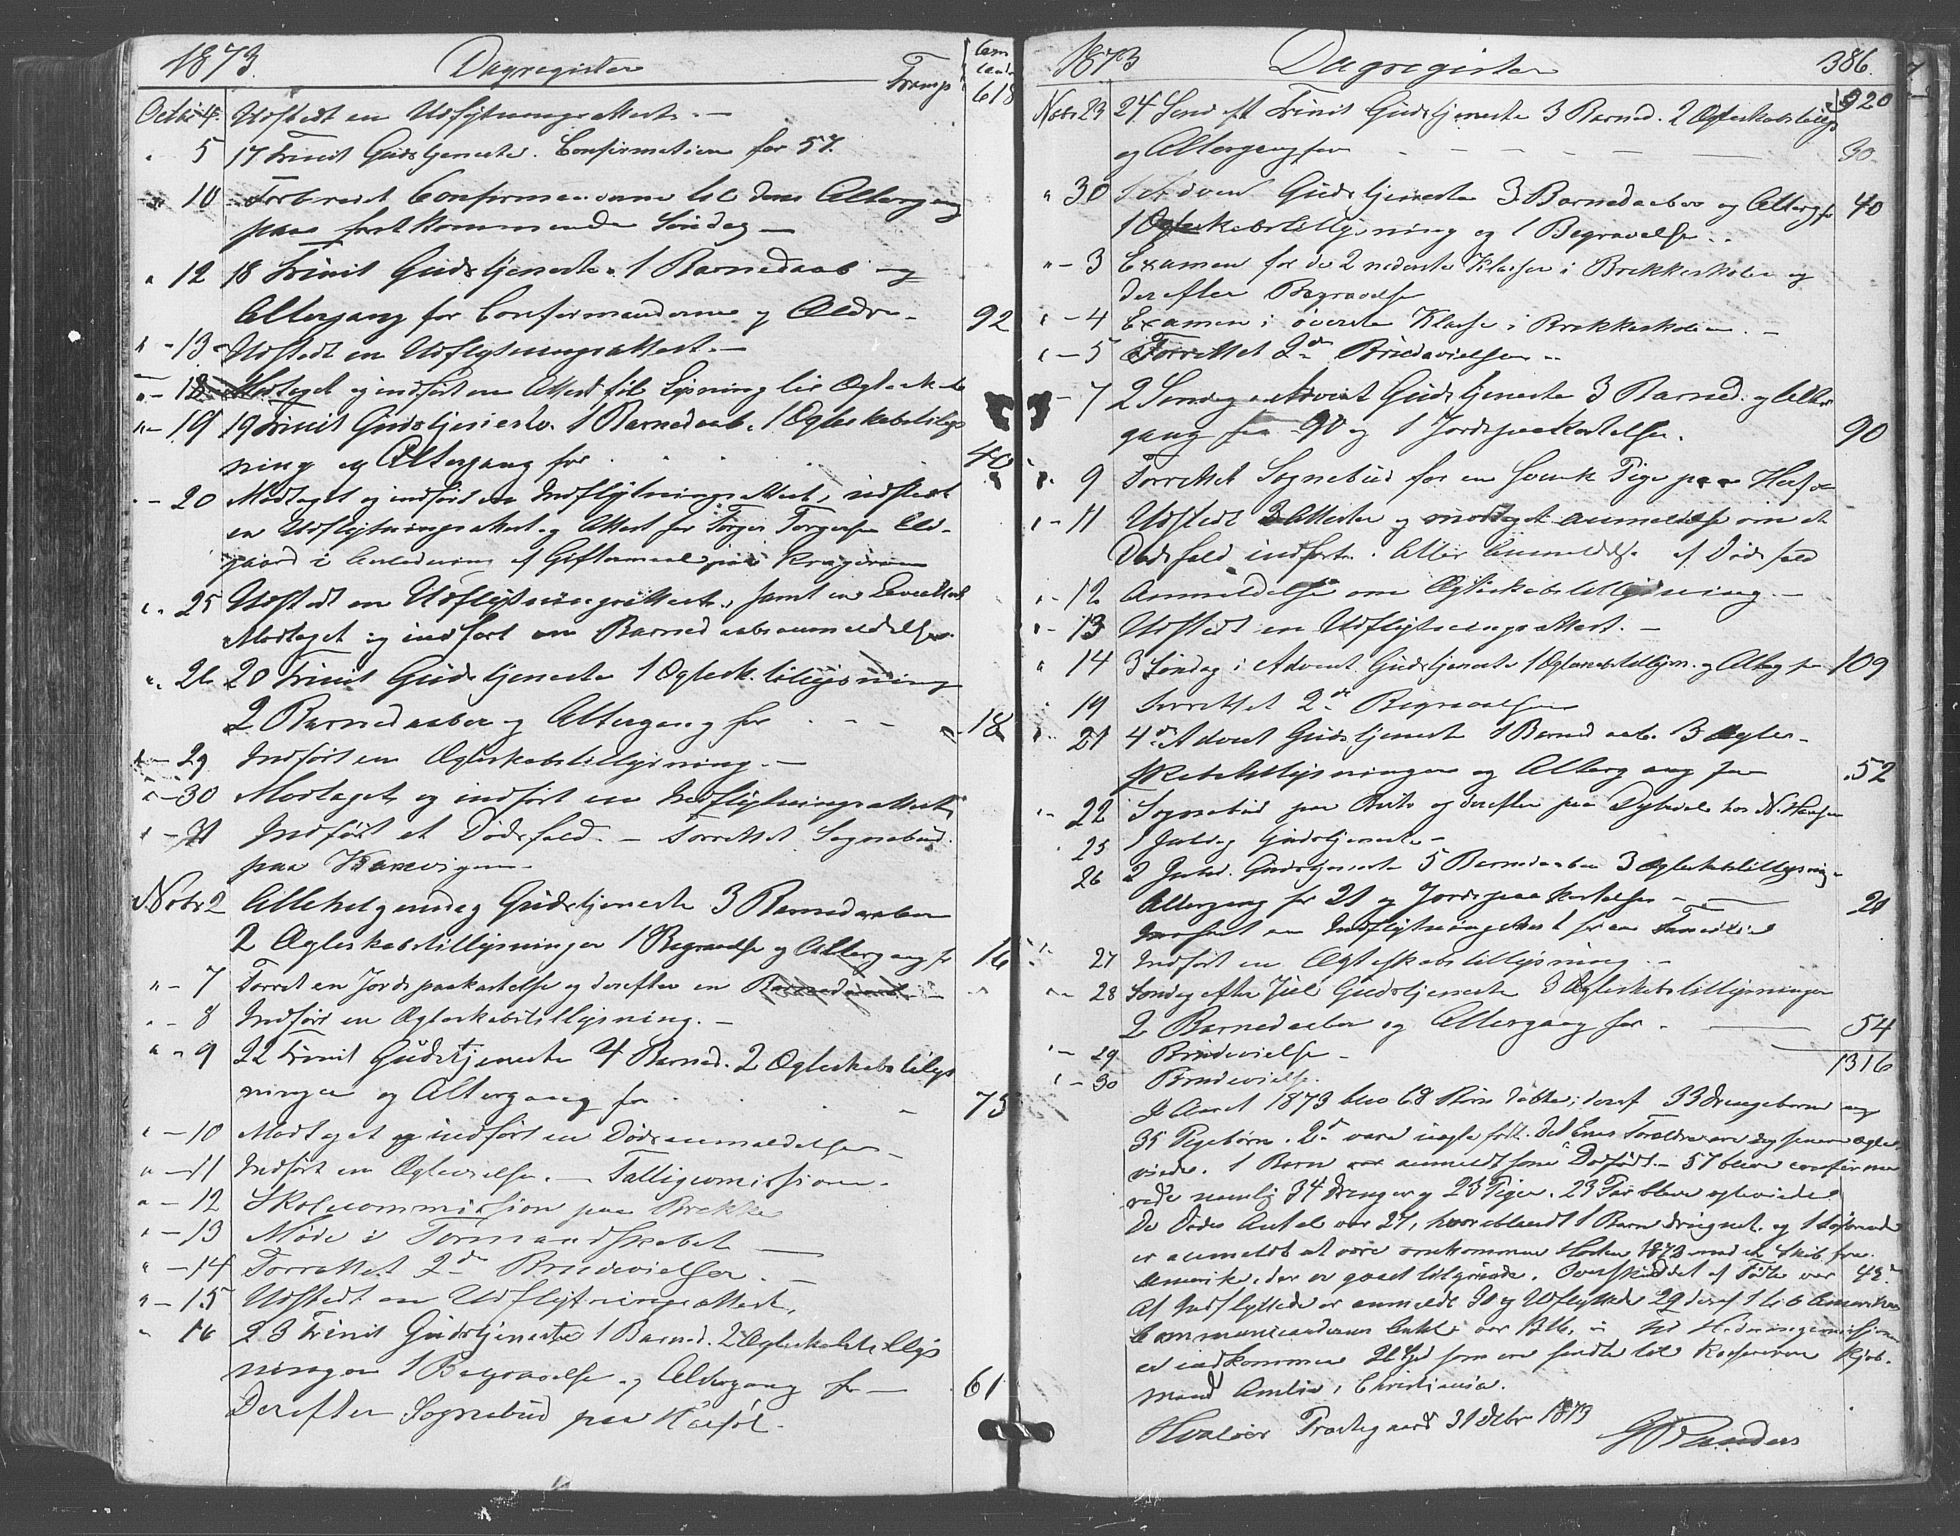 1873. Dagregister
Transp 618
Octbr 4. Udstedt en Udflytningsattest. —
" 5 17 Trinit Gudstjeneste. Confirmation for 57.
" 10 Forberedt Confirmanderne til deres Altergang
paa førstkommende Søndag —
" 12 18 Trinit Gudstjeneste. 1 Barnedaab og
Altergang for Confirmanderne og Ældre. 92
" - 13 - Udstedt en Udflytningsattest. —
" - 18 Modtaget og indført en Attest til Lysning til Ægteskab
" - 19 19 Trinit Gudstjeneste. 1 Barnedaab. 1 Ægteskabstillys
ning og Altergang for 40
" - 20 Modtaget og indført en Indflytningsattest, udstedt
en Udflytningsattest og Attest for Torger Torgersen
gaard i Anledning af Giftermaal paa Kragerøen
" 25 Udstedt en Udflytningsattest, samt en
Modtaget og indført en Barnedaabsanmeldelse.
" 26 20 Trinit Gudstjeneste 1 Ægtesk. tillysning
2 Barnedaaber og Altergang for - - - 18
" - 29 Indført en Ægteskabstillysning. —
" - 30 Modtaget og indført en Indflytningsattest
" - 31 Indført et Dødsfald. — Forrettet Sognebud
paa
Novbr 2 Allehelgensdag Gudstjeneste 3 Barnedaaber
2 Ægteskabstillysninger 1 Begravelse og Altergang fr 16
" - 7 Forret en Jordspaakastelse og derefter en
" - 8 Indført en Ægteskabstillysning. —
" " 9 22 Trinit Gudstjeneste 4 Barned. 2 Ægteskabstillys
ninger og Altergang for 75
" - 10 Modtaget og indført en Dødsanmeldelse —
" - 11 Indført en Ægtevielse. — Fattigcomission.
" - 12 Skolecommission paa Brekke
" - 13 Møde i Formandskabet —
" - 14 Forrettet 2de Brudevielser. —
" - 15 Udstedt en Udflytningsattest.
" 16 23 Trinit Gudstjeneste 1 Barned. 2 Ægteskabstillys
ninger 1 Begravelse og Altergang for — 61
Derefter Sognebud paa Herføl.
1873 Dagregister 386.
920
Novbr 23 24 Sønd eft Trinit Gudstjeneste 3 Barned. 2 Ægteskabstillys
og Altergang for — — — — — 30
" 30 1 Advent Gudstjeneste 3 Barnedaaber og Alterg fr 40
1 Ægteskabstillysning og 1 Begravelse. .
" - 3 Examen for de 2 nederste Klasser i Brekkeskolen og
derefter Begravelse
" - 4 Examen i øverste Klasse i Brekkeskolen. —
" - 5 Forrettet 2de Brudevielser. .
- 7 2 Søndag i Advent Gudstjeneste 3 Barned. og Alter
gang for 90 og 1 Jordspaakastelse. 90
" 9 Forrettet Sognebud for en svensk Pige paa
" - 11 Udstedt 3 Attester og modtaget anmeldelse om et
Dødsfald indført. Atter Anmeldelse af Dødsfald
" - 12 Anmeldelse om Ægteskabstillysning. —
" - 13 Udstedt en Udflytningsattest. —
" 14 3 Søndag i Advent Gudstjeneste 1 Ægteskabstillysn. og Alterg for 109
" 19 Forrettet 2de Begravelser
" 21 4de Advent Gudstjeneste 1 Barnedaab. 3 Ægte-
skabstillysninger og Altergang for 52
" - 22 Sognebud paa og derefter paa hos N. Hansen
" 25 1 Juledag Gudstjeneste —
26 2 Juled. Gudstjeneste 5 Barnedaaber 3 Ægteskabstillysning
Altergang for 21 og Jordspaakastelse — 21
Indført en Indflytningsattest for en Familie
27 Indført en Ægteskabstillysning —
" - 28 Søndag efter Juul Gudstjeneste 3 Ægteskabstillysninger
2 Barnedaaber og Altergang for. — 54
" - 29 Brudevielse — 1316
" - 30 Brudevielse.
I Aaret 1873 blev 68 Børn døbte; deraf 33 Drengebørn og
35 Pigebørn. 2de vare uægte født. Det Enes Forældre ere dog senere ægte
viede. 1 Barn er anmeldt som Dødfødt. — 57 bleve confirme
rede nemlig 34 Drenge og 23 Piger. 23 Par bleve ægteviede
De Dødes Antal var 27, hvoriblandt 1 Barn druknet. og 1 Søfarende
er anmeldt at være omkommen Høsten 1872 med et Skib fra
Amerika, der er gaaet tilgrunde. Overskuddet af Fødte var 43.
Af Indflyttede er anmeldt 30 og Udflyttede 29 deraf 1 til Amerika
Communicanternes Antal var 1316. — Til Hedningemissionen
er indkommen som ere sendte til Kassereren Kjøb-
mand i Christiania.
Hvaløer Præstegaard 31 Decbr 1873
G Randers